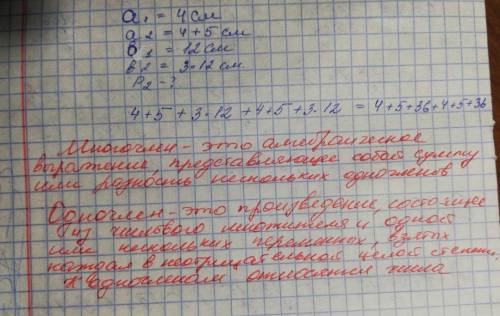 a₁ = 4 см
a₂ = 4+5 см
в₁ = 12 см
в₂ = 3·12 см
P₂ - ?
4+5 + 3·12 + 4+5 + 3·12 = 4+5+36+4+5+36
Многочлен - это алгебраическое
выражение, представляющее собой сумму
или разность нескольких одночленов
Одночлен - это произведение, состоящее
из числового множителя и одной
или нескольких переменных, взятых
каждая в неотрицательной целой степени.
К одночленам относятся числа